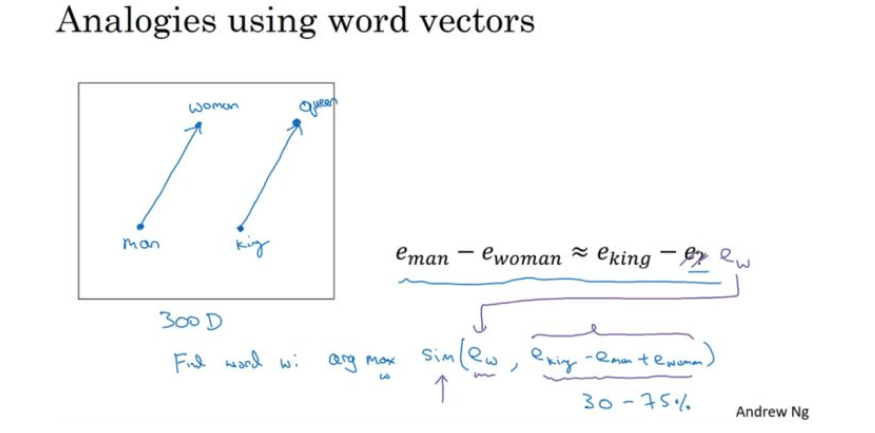 Analogies using word vectors
woman queen
man king
e_man − e_woman ≈ e_king − e_? e_w
300D
Find word w: arg max_w sim(e_w, e_king - e_man + e_woman)
30-75%
Andrew Ng